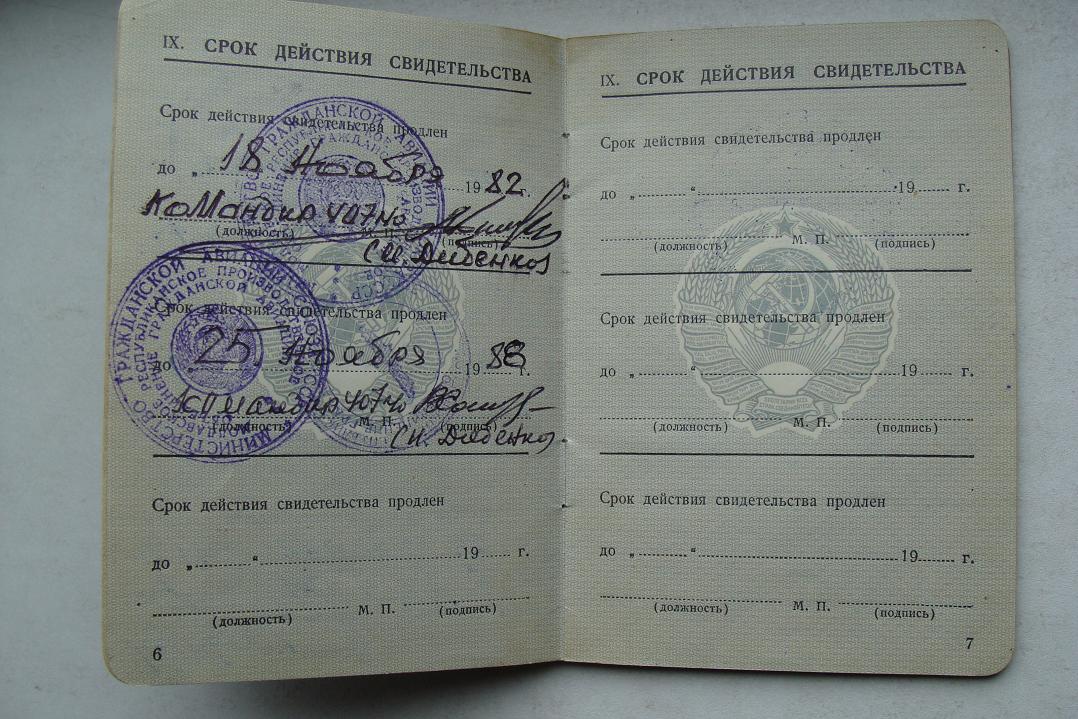 IX. СРОК ДЕЙСТВИЯ СВИДЕТЕЛЬСТВА
Срок действия свидетельства продлен
до „ 18 Ноября 1982 г.
Командир 407 ло
(должность) М. П. (подпись)
С.И. Дибенко
Срок действия свидетельства продлен
до „ 25 " Ноября 1983 г.
Командир 407 ло
(должность) М. П. (подпись)
С.И. Дибенко
Срок действия свидетельства продлен
до „ “ 19 г.
М. П.
(должность) (подпись)
6
МИНИСТЕРСТВО ГРАЖДАНСКОЙ АВИАЦИИ СССР
IX. СРОК ДЕЙСТВИЯ СВИДЕТЕЛЬСТВА
Срок действия свидетельства продлен
до „ “ 19 г.
(должность) М. П. (подпись)
Срок действия свидетельства продлен
до „ “ 19 г.
(должность) М. П. (подпись)
Срок действия свидетельства продлен
до „ “ 19 г.
(должность) М. П. (подпись)
7